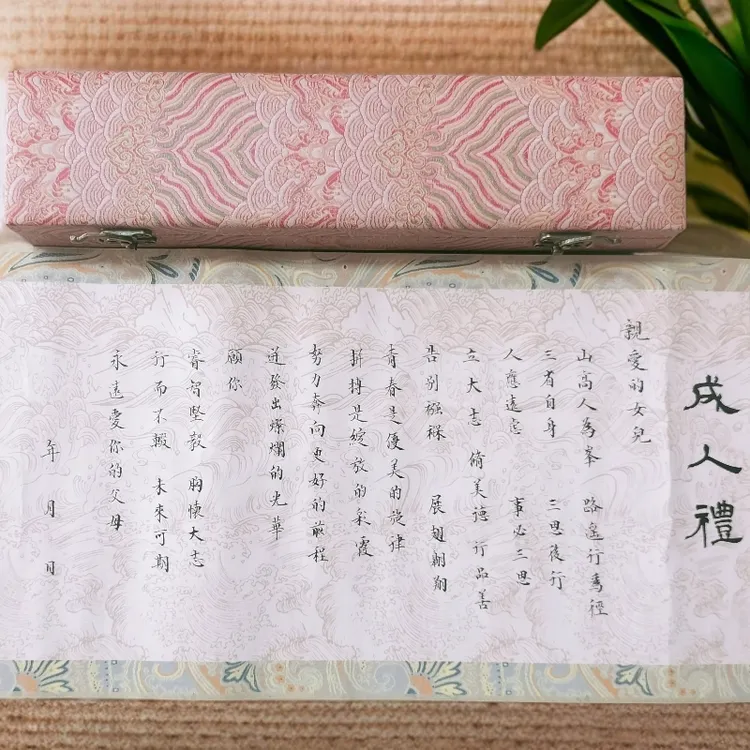 成人禮
親愛的女兒
山高人為峯 路遙行為徑
三省自身 三思後行
人應遠慮 事必三思
立大志 脩美德 行品善
告别襁褓 展翅翱翔
青春是優美的旋律
拼搏是綻放的彩霞
努力奔向更好的前程
迸發出燦爛的光華
願你
睿智堅毅 胸懷大志
行而不輟 未來可期
永遠愛你的父母
年 月 日